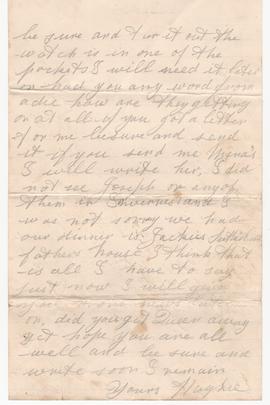 be sure and
watch is in one of the
pockets I will need it later
on had you any word from
adie how are they getting
on at all if you get a letter
for me be sure and send
it if you send me
I will write her, I did
not see Joseph or any of
them in Inverness and I
was not sorry we had
our dinner in Jackies
fathers house I think this
is all I have to say
just now I will give

on, did you get away
yet hope you are all
well and be sure and
write soon I remain
Yours